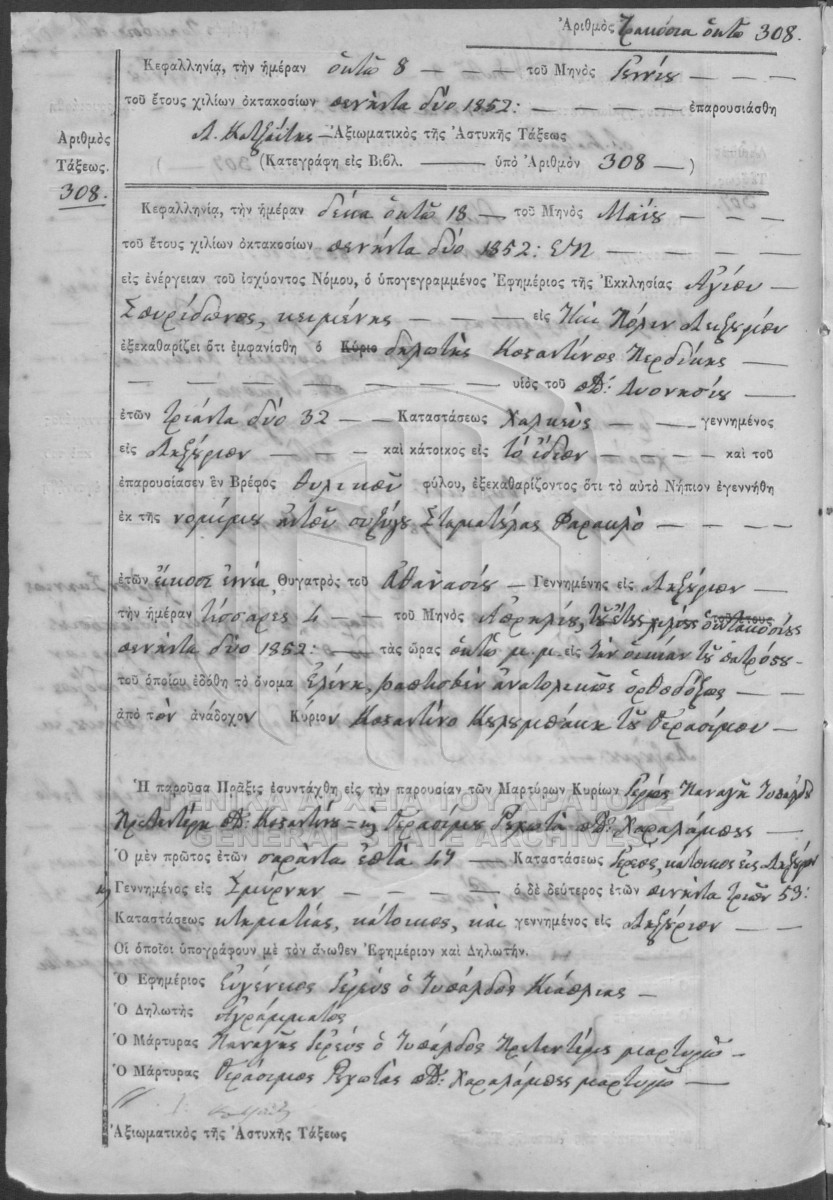 Ἀριθμὸς Τρακόσια ὀκτὼ 308.
Κεφαλληνίᾳ, τὴν ἡμέραν ὀκτὼ 8 — — — τοῦ Μηνὸς — — —
τοῦ ἔτους χιλίων ὀκτακοσίων πενήντα δύο 1852: — — — — ἐπαρουσιάσθη
Ἀξιωματικὸς τῆς Ἀστυκῆς Τάξεως
(Κατεγράφη εἰς Βιβλ. — ὑπὸ Ἀριθμὸν 308 —)
Ἀριθμὸς
Τάξεως.
308.
Κεφαλληνίᾳ, τὴν ἡμέραν δέκα ὀκτὼ 18 — τοῦ Μηνὸς Μαΐου — — —
τοῦ ἔτους χιλίων ὀκτακοσίων πενήντα δύο 1852: ΕΠ — — — —
εἰς ἐνέργειαν τοῦ ἰσχύοντος Νόμου, ὁ ὑπογεγραμμένος Ἐφημέριος τῆς Ἐκκλησίας Ἁγίου —
Σπυρίδωνος, κειμένης — — — — εἰς Πόλιν Ληξουρίου
ἐξεκαθαρίζει ὅτι ἐμφανίσθη ὁ Κύριο δηλωτὴς Κοσταντῖνος Περδίκης —
— — — — — — υἱὸς τοῦ πδ: Διονησίου —
ἐτῶν τριάντα δύο 32 — — Καταστάσεως Χαλκεὺς — — γεννημένος
εἰς Ληξούριον — — — — καὶ κάτοικος εἰς τὸ ἴδιον — — — — καὶ τοῦ
ἐπαρουσίασεν ἓν Βρέφος θυλικοῦ φύλου, ἐξεκαθαρίζοντος ὅτι τὸ αὐτὸ Νήπιον ἐγεννήθη
ἐκ τῆς νομίμου αὐτοῦ συζύγου Σταματέλας Φαρακλὸ — — — —
ἐτῶν εἴκοσι ἐννία, Θυγατρὸς τοῦ Ἀθανασίου — Γεννημένης εἰς Ληξούριον —
τὴν ἡμέραν τέσσαρες 4 — — τοῦ Μηνὸς Ἀπρηλίου, τοῦ ἔτους χιλίους ὀκτακοσίους
πενήντα δύο 1852: — τὰς ὥρας ὀκτὼ μ.μ. εἰς τὴν οἰκίαν τοῦ πατρός —
τοῦ ὁποίου ἐδόθη τὸ ὄνομα Ἑλένη, βαπτισθὲν ἀνατολικῶς ὀρθοδόξως — —
ἀπὸ τὸν ἀνάδοχον Κύριον Κοσταντῖνο Κελεμπάκη τοῦ Γερασίμου —
Ἡ παροῦσα Πρᾶξις ἐσυντάχθη εἰς τὴν παρουσίαν τῶν Μαρτύρων Κυρίων Ἱερέως Παναγῆ Τυπάλδο
Πρετεντέρη πδ: Κοσταντίνου = κ Γερασίμου Ρεχωτᾶ πδ: Χαραλάμπους —
ΓΕΝΙΚΑ ΑΡΧΕΙΑ ΤΟΥ ΚΡΑΤΟΥΣ
GENERAL STATE ARCHIVES
Ὁ μὲν πρῶτος ἐτῶν σαράντα ἑπτὰ 47 — Καταστάσεως Ἱερεὺς, κάτοικος εἰς Ληξούριον
κ Γεννημένος εἰς Σμύρνην — — — — ὁ δὲ δεύτερος ἐτῶν πενήντα τριῶν 53:
Καταστάσεως κτηματίας, κάτοικος, καὶ γεννημένος εἰς Ληξούριον — —
Οἱ ὁποῖοι ὑπογράφουν μὲ τὸν ἄνωθεν Ἐφημέριον καὶ Δηλωτήν.
Ὁ Ἐφημέριος Εὐγένειος ἱερεὺς ὁ Τυπάλδος —
Ὁ Δηλωτὴς ἀγράμματος
Ὁ Μάρτυρας Παναγῆς ἱερεὺς ὁ Τυπάλδος Πρετεντέρης μαρτυρῶ —
Ὁ Μάρτυρας Γεράσιμος Ρεχωτᾶς πδ: Χαραλάμπους μαρτυρῶ —
Ἀξιωματικὸς τῆς Ἀστυκῆς Τάξεως